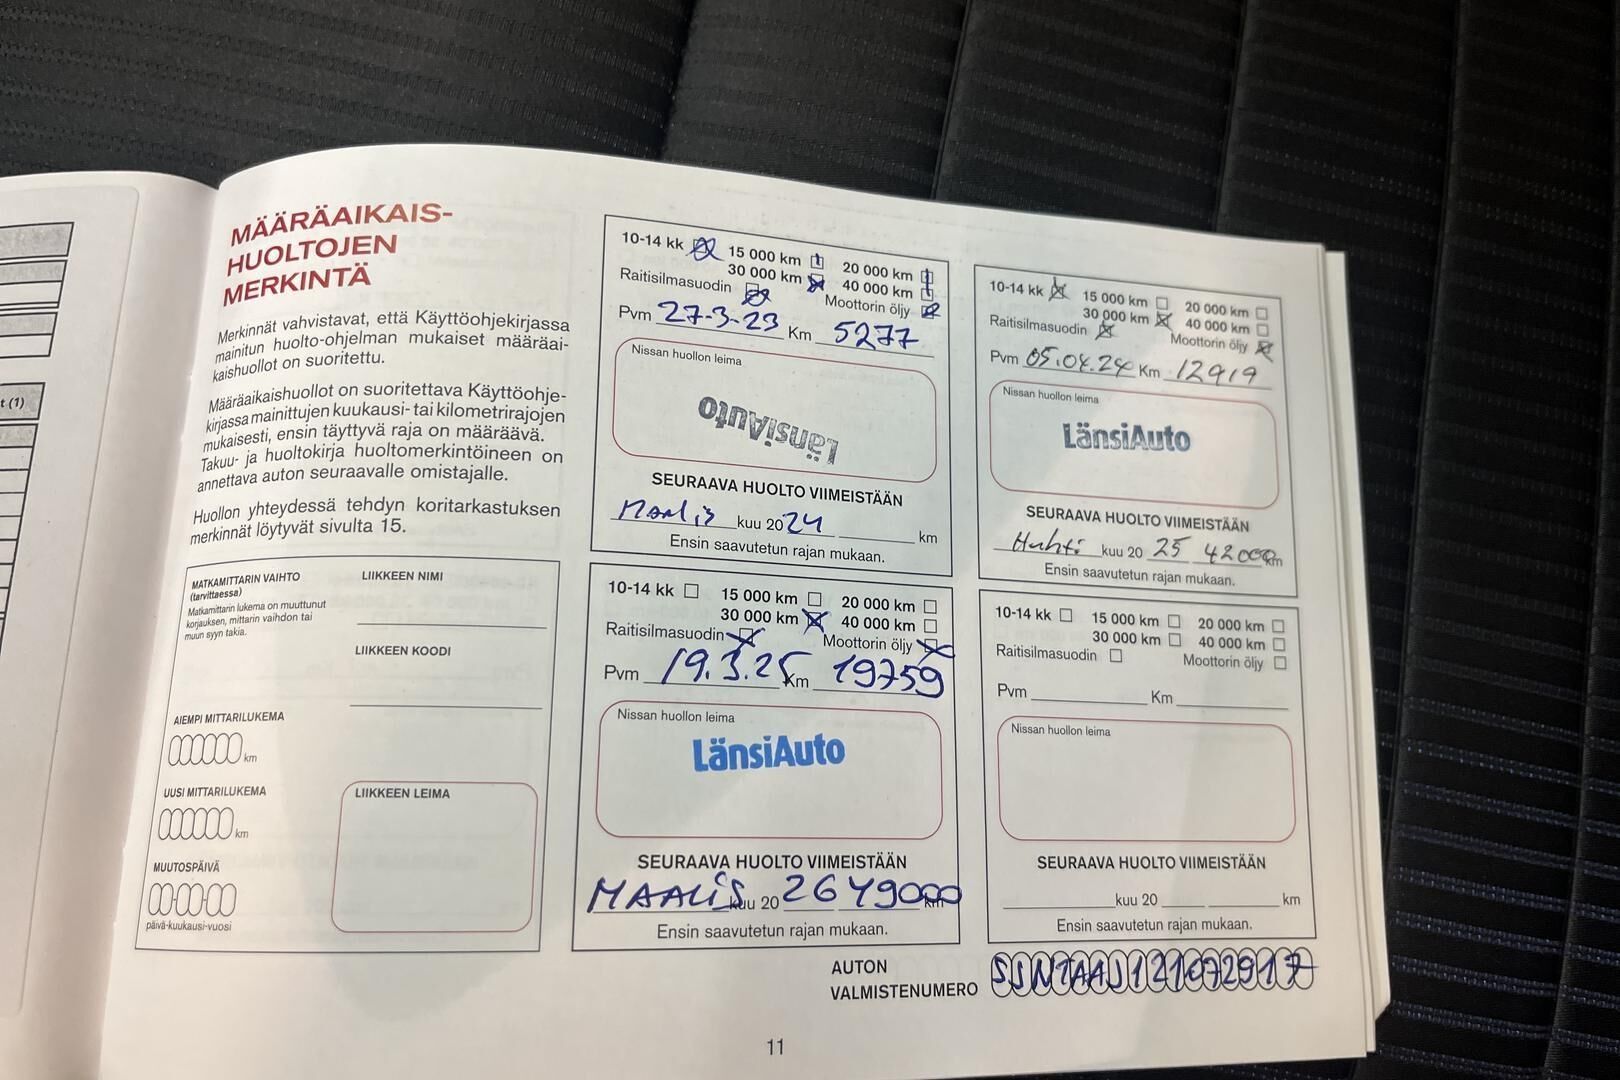 t (1)
MÄÄRÄAIKAIS-
HUOLTOJEN
MERKINTÄ
Merkinnät vahvistavat, että Käyttöohjekirjassa
mainitun huolto-ohjelman mukaiset määräai-
kaishuollot on suoritettu.
Määräaikaishuollot on suoritettava Käyttöohje-
kirjassa mainittujen kuukausi- tai kilometrirajojen
mukaisesti, ensin täyttyvä raja on määräävä.
Takuu- ja huoltokirja huoltomerkintöineen on
annettava auton seuraavalle omistajalle.
Huollon yhteydessä tehdyn koritarkastuksen
merkinnät löytyvät sivulta 15.
MATKAMITTARIN VAIHTO
(tarvittaessa)
Matkamittarin lukema on muuttunut
korjauksen, mittarin vaihdon tai
muun syyn takia.
LIIKKEEN NIMI
LIIKKEEN KOODI
AIEMPI MITTARILUKEMA
km
UUSI MITTARILUKEMA
km
MUUTOSPÄIVÄ
päivä-kuukausi-vuosi
LIIKKEEN LEIMA
10-14 kk 15 000 km 20 000 km
30 000 km 40 000 km
Raitisilmasuodin Moottorin öljy
Pvm 27-3-23 Km 5277
Nissan huollon leima
LänsiAuto
SEURAAVA HUOLTO VIIMEISTÄÄN
Maalis kuu 2024 km
Ensin saavutetun rajan mukaan.
10-14 kk 15 000 km 20 000 km
30 000 km 40 000 km
Raitisilmasuodin Moottorin öljy
Pvm 05.04.24 Km 12919
Nissan huollon leima
LänsiAuto
SEURAAVA HUOLTO VIIMEISTÄÄN
Huhti kuu 20 25 42000 km
Ensin saavutetun rajan mukaan.
10-14 kk 15 000 km 20 000 km
30 000 km 40 000 km
Raitisilmasuodin Moottorin öljy
Pvm 19.3.25 Km 19759
Nissan huollon leima
LänsiAuto
SEURAAVA HUOLTO VIIMEISTÄÄN
MAALIS kuu 20 26 49000 km
Ensin saavutetun rajan mukaan.
10-14 kk 15 000 km 20 000 km
30 000 km 40 000 km
Raitisilmasuodin Moottorin öljy
Pvm Km
Nissan huollon leima
SEURAAVA HUOLTO VIIMEISTÄÄN
kuu 20 km
Ensin saavutetun rajan mukaan.
AUTON
VALMISTENUMERO SJNTAAJ12U1072917
11